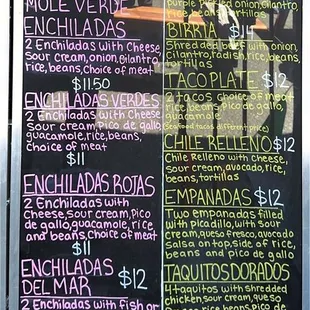 MOLE VERDE
ENCHILADAS
2 Enchiladas with Cheese,
sour cream, onion, cilantro,
rice, beans, choice of meat
$11.50
ENCHILADAS VERDES
2 Enchiladas with Cheese
sour cream, Pico de gallo
guacamole, rice, beans,
choice of meat
$11
ENCHILADAS ROJAS
2 Enchiladas with
Cheese, sour cream, Pico
de gallo, guacamole, rice
and beans, choice of meat
$11
ENCHILADAS
DEL MAR $12
2 Enchiladas with fish or
purple pickled onion, cilantro,
rice, beans, tortillas
BIRRIA $14
Shredded beef with onion,
cilantro, radish, rice, beans,
tortillas
TACO PLATE $12
2 tacos choice of meat
rice, beans, pico de gallo,
guacamole
(Seafood tacos different price)
CHILE RELLENO $12
Chile Relleno with cheese,
sour cream, avocado, rice,
beans, tortillas
EMPANADAS $12
Two empanadas filled
with picadillo, with sour
cream, queso fresco, avocado
salsa on top, side of rice,
beans and pico de gallo
TAQUITOS DORADOS
4 taquitos with shredded $12
chicken, sour cream, queso
rice, beans, pico de